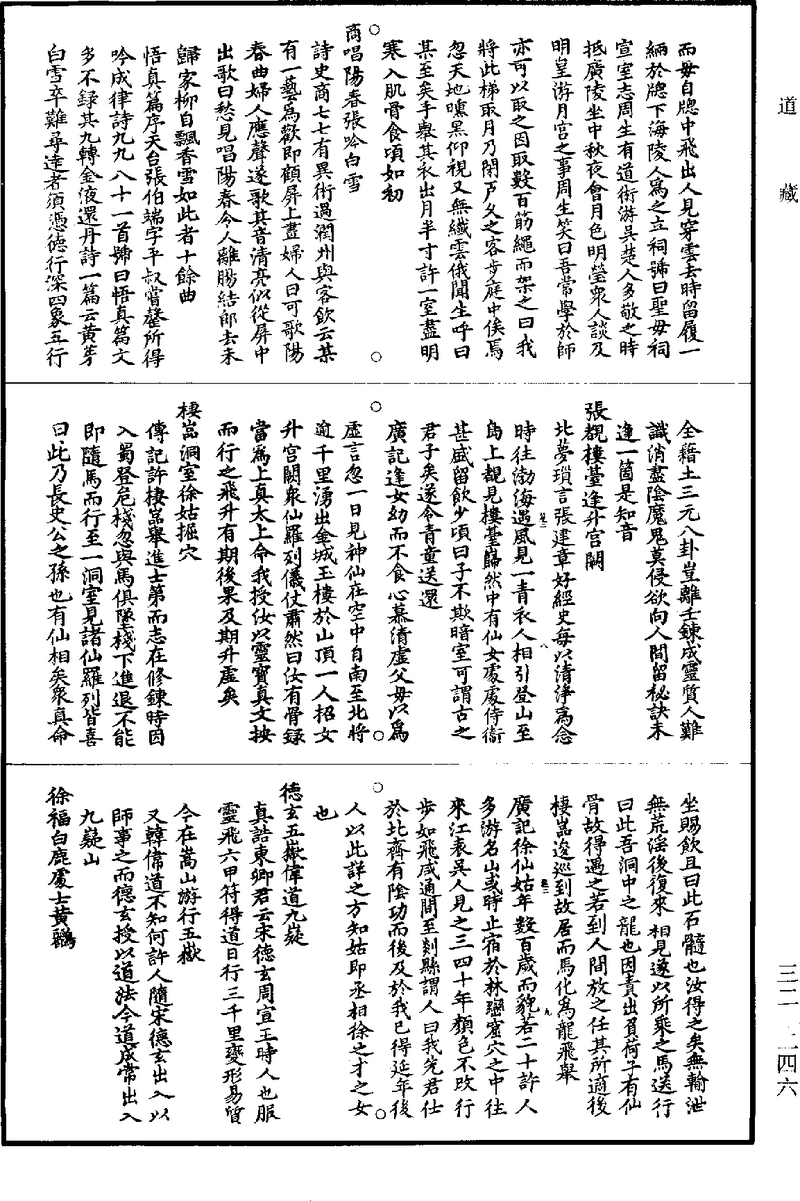 道藏
三二、一四六
而毋自牕中飛出人見穿雲去時留履一
緉於牕下海陵人為之立祠號曰聖毋祠
宣室志周生有道術游吳楚人多敬之時
抵廣陵坐中秋夜會月色明瑩衆人談及
明皇游月宫之事周生笑曰吾常學於師
亦可以取之因取數百筯繩而架之曰我
將此梯取月乃閉户久之客步庭中俟焉
忽天地曛黑仰視又無纖雲俄聞生呼曰
某至矣手舉其衣出月半寸許一室盡明
寒入肌骨食頃如初
商唱陽春張吟白雪
詩史商七七有異術過潤州與客飲云某
有一藝為歡即顧屏上畫婦人曰可歌陽
春曲婦人應聲遂歌其音清亮似從屏中
出歌曰愁見唱陽春令人離腸結郎去未
歸家柳自飄香雪如此者十餘曲
悟真篇序天台張伯端字平叔嘗罄所得
吟成律詩九九八十一首號曰悟真篇文
多不録其九轉金液還丹詩一篇云黄芽
白雪卒難尋達者須憑德行深四象五行
全藉土三元八卦豈離壬鍊成靈質人難
識消盡陰魔鬼莫侵欲向人間留秘訣未
逢一箇是知音
張覩樓臺逢升宫闕
北夢瑣言張建章好經史每以清淨為念
時往渤海遇風見一青衣人相引登山至
島上覩見樓臺巋然中有仙女處處侍衛
甚盛留飲少頃曰子不欺暗室可謂古之
君子矣遂令青童送還
廣記逢女幼而不食心慕清虚父毋以為
虚言忽一日見神仙在空中自南至北將
逾千里湧出金城玉樓於山頂一人招女
升宫闕衆仙羅列儀仗肅然曰汝有骨録
當為上真太上命我授汝以靈寶真文按
而行之飛升有期後果及期升虚矣
棲嵓洞室徐姑掘穴
傳記許棲嵓舉進士第而志在修鍊時因
入蜀登危棧忽與馬俱墜棧下進退不能
即隨馬而行至一洞室見諸仙羅列皆喜
曰此乃長史公之孫也有仙相矣衆真命
坐賜飲且曰此石髓也汝得之矣無輸泄
無荒淫後復來相見遂以所乘之馬送行
曰此吾洞中之龍也因責出負荷子有仙
骨故得遇之若到人間放之任其所適後
棲嵓逡巡到故居而馬化為龍飛舉
廣記徐仙姑年數百歲而貌若二十許人
多游名山或時止宿於林巒窟穴之中往
來江表吳人見之三四十年顏色不改行
步如飛咸通間至剡縣謂人曰我先君仕
於北齊有陰功而後及於我已得延年後
人以此詳之方知姑即丞相徐之才之女
也
德玄五嶽偉道九嶷
真誥東卿君云宋德玄周宣王時人也服
靈飛六甲符得道日行三千里變形易質
今在嵩山游行五嶽
又韓偉道不知何許人隨宋德玄出入以
師事之而德玄授以道法今道成常出入
九嶷山
徐福白鹿處士黄鸝